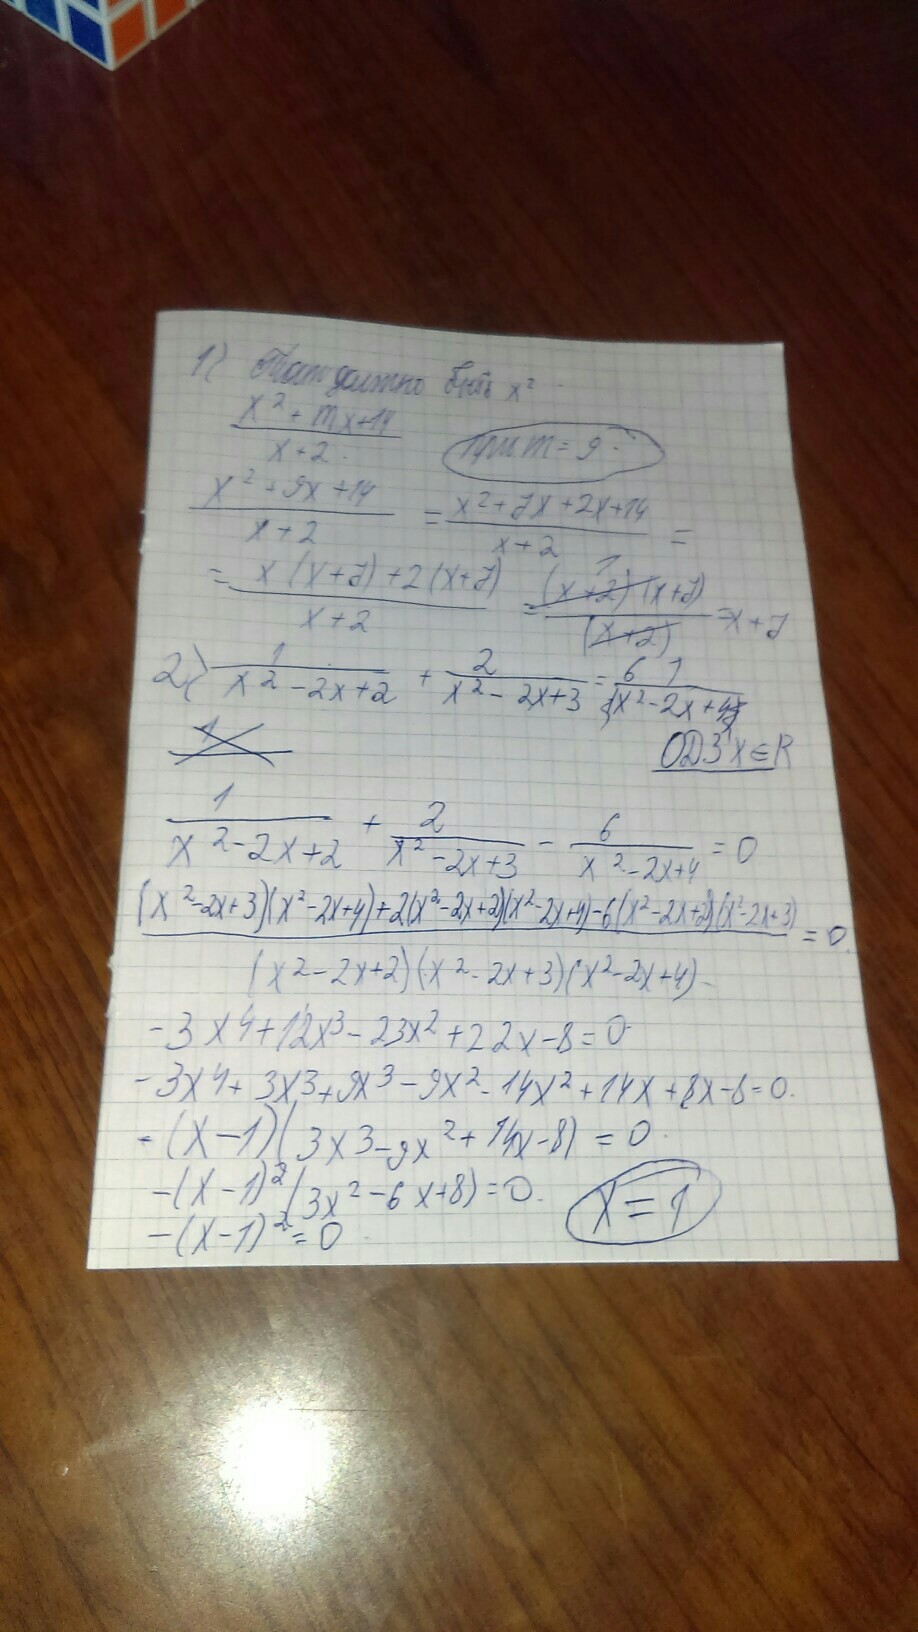 1) Там должно быть x²
(x² + mx + 14)/(x + 2) при m = 9
(x² + 9x + 14)/(x + 2) = (x² + 7x + 2x + 14)/(x + 2) =
= (x(x + 7) + 2(x + 7))/(x + 2) = ((x + 2)(x + 7))/(x + 2) = x + 7
2) 1/(x² - 2x + 2) + 2/(x² - 2x + 3) = 6/(x² - 2x + 4)
ОДЗ x ∈ R
1/(x² - 2x + 2) + 2/(x² - 2x + 3) - 6/(x² - 2x + 4) = 0
((x² - 2x + 3)(x² - 2x + 4) + 2(x² - 2x + 2)(x² - 2x + 4) - 6(x² - 2x + 2)(x² - 2x + 3))/((x² - 2x + 2)(x² - 2x + 3)(x² - 2x + 4)) = 0
-3x⁴ + 12x³ - 23x² + 22x - 8 = 0
-3x⁴ + 3x³ + 9x³ - 9x² - 14x² + 14x + 8x - 8 = 0.
-(x - 1)(3x³ - 9x² + 14x - 8) = 0
-(x - 1)²(3x² - 6x + 8) = 0. x = 1
-(x - 1)² = 0